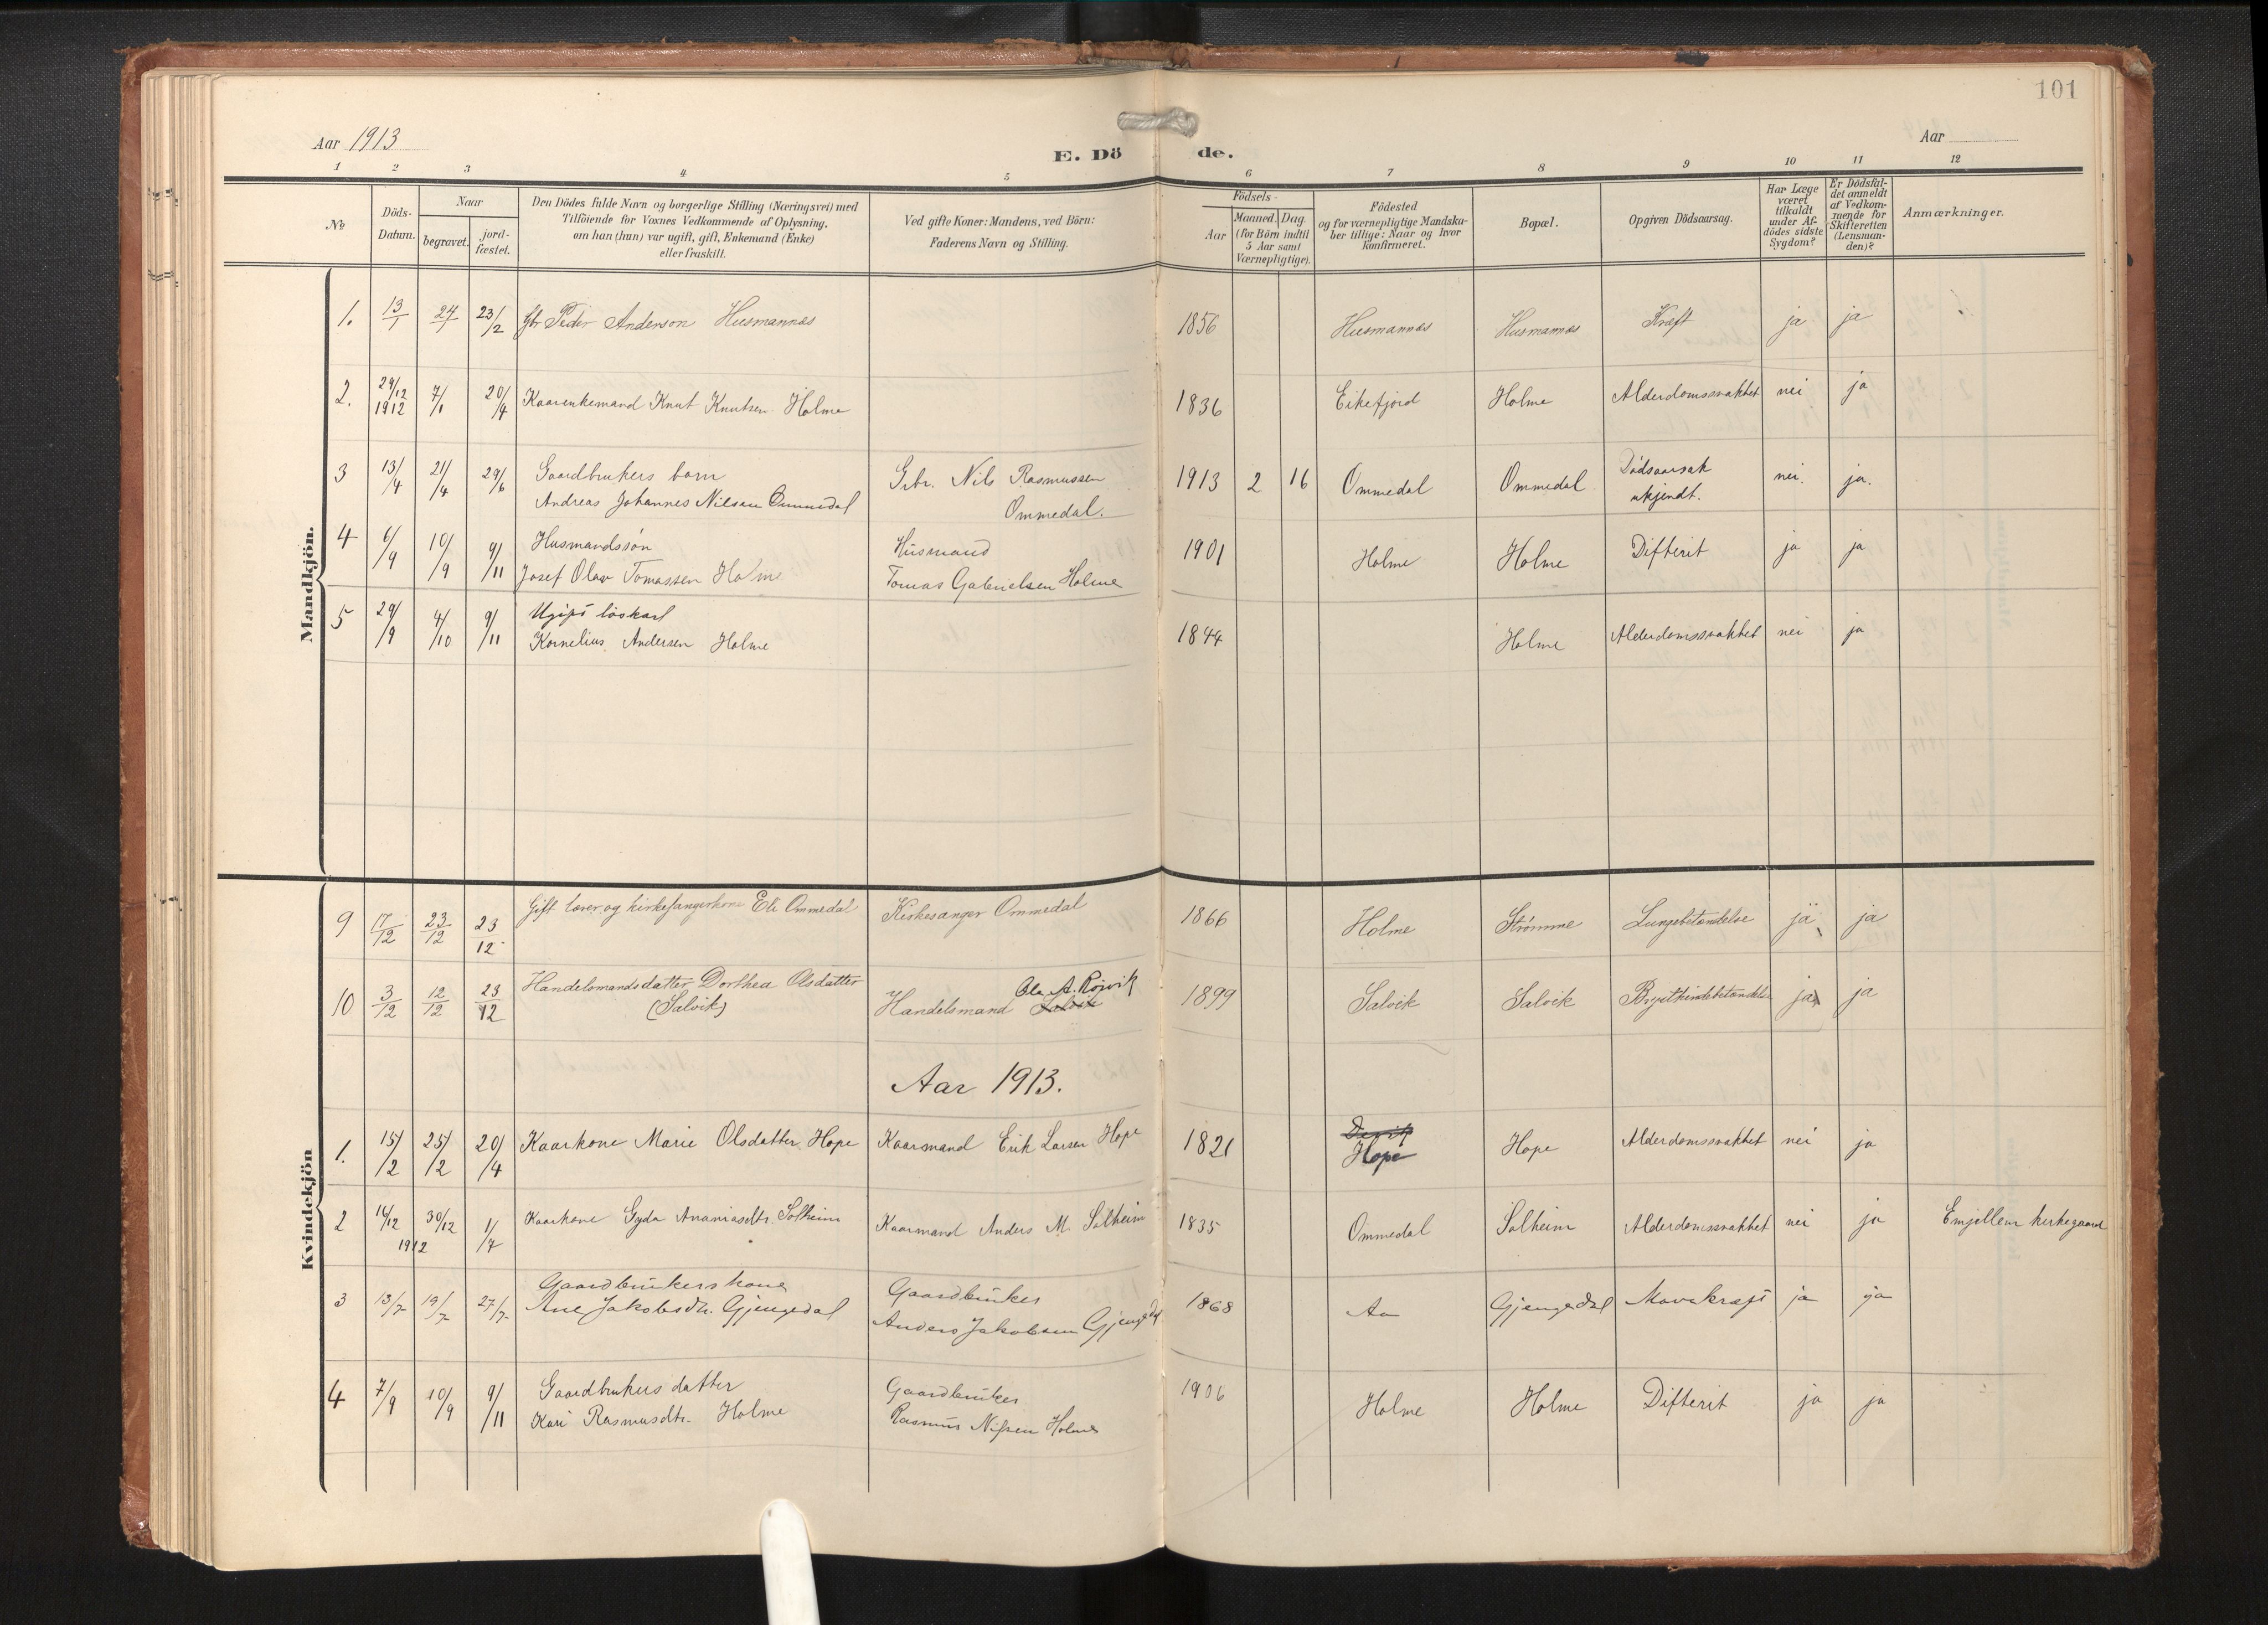 101
Aar 1913
Aar
E. Dö de.
1 2 3 4 5 6 7 8 9 10 11 12
No
Döds-Datum.
Naar
begravet.
jord-fæstet.
Den Dödes fulde Navn og borgerlige Stilling (Næringsvei) med
Tilföiende for Voxnes Vedkommende af Oplysning,
om han (hun) var ugift, gift, Enkemand (Enke)
eller fraskilt.
Ved gifte Koner: Mandens, ved Börn:
Faderens Navn og Stilling.
Födsels-
Aar
Maaned. Dag
(for Börn indtil
5 Aar samt
Værnepligtige).
Födested
og for værnepligtige Mandska-
ber tillige: Naar og hvor
konfirmeret.
Bopæl.
Opgiven Dödsaarsag.
Har Læge
været
tilkaldt
under Af-
dödes sidste
Sygdom?
Er Dödsfal-
det anmeldt
af Vedkom-
mende for
Skifteretten
(Lensman-
den)?
Anmærkninger.
Mandkjön.
1. 13/1 24/1 23/2 Gbr Peder Anderson Husmannæs 1856 Husmannæs Husmannæs Kræft ja ja
2. 29/12 1912 7/1 20/4 Kaarenkemand Knut Knutsen Holme 1836 Eikefjord Holme Alderdomssvakhet nei ja
3 13/4 21/4 29/6 Gaardbrukers barn
Andreas Johannes Nilsen Ommedal
Grbr. Nils Rasmussen
Ommedal.
1913 2 16 Ommedal Ommedal Dödsaarsak
ukjendt.
nei. ja.
4 6/9 10/9 9/11 Husmandssön
Josef Olav Tomassen Holme
Husmand
Tomas Gabrielsen Holme
1901 Holme Holme Difterit ja ja
5 29/9 4/10 9/11 Ugift löskarl
Kornelius Andersen Holme
1844 Holme Alderdomssvakhet nei ja
Kvindekjön
9 17/12 23/12 23/12 Gift lærer og kirkesangerkone Eli Ommedal Kirkesanger Ommedal 1866 Holme Strömme Lungebetændelse ja ja
10 3/12 12/12 23/12 Handelsmandsdatter Dorthea Olsdatter
(Salvik)
Ole A. Röivik
Handelsmand Salvik
1899 Salvik Salvik Brysthindebetændelse ja ja
Aar 1913.
1. 15/2 25/2 20/4 Kaarkone Marie Olsdatter Hope Kaarmand Erik Larsen Hope 1821 Hope Hope Alderdomssvakhet nei ja
2 16/12 30/12 1912 1/4 Kaarkone Gyda Ananiasdtr. Solheim Kaarmand Anders M. Solheim 1835 Ommedal Solheim Alderdomssvakhet nei ja Emjellem kirkegaard
3 13/7 19/7 27/7 Gaardbrukerskone
Ane Jakobsdtr. Gjengedal
Gaardbruker
Anders Jakobsen Gjengedal
1868 Aa Gjengedal Mavekræft ja ja
4 7/9 10/9 9/11 Gaardbrukers datter
Kari Rasmusdtr. Holme
Gaardbruker
Rasmus Nilsen Holme
1906 Holme Holme Difterit ja ja